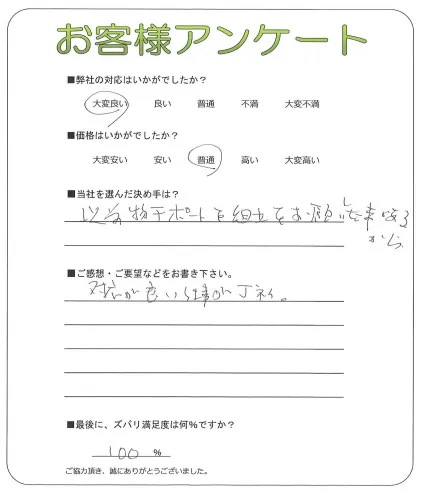 お客様アンケート
■弊社の対応はいかがでしたか？
大変良い 良い 普通 不満 大変不満
■価格はいかがでしたか？
大変安い 安い 普通 高い 大変高い
■当社を選んだ決め手は？
以前物干ポート 組立をお願いし
から
■ご感想・ご要望などをお書き下さい。
対応が良い 丁ネイ。
■最後に、ズバリ満足度は何%ですか？
100 %
ご協力頂き、誠にありがとうございました。